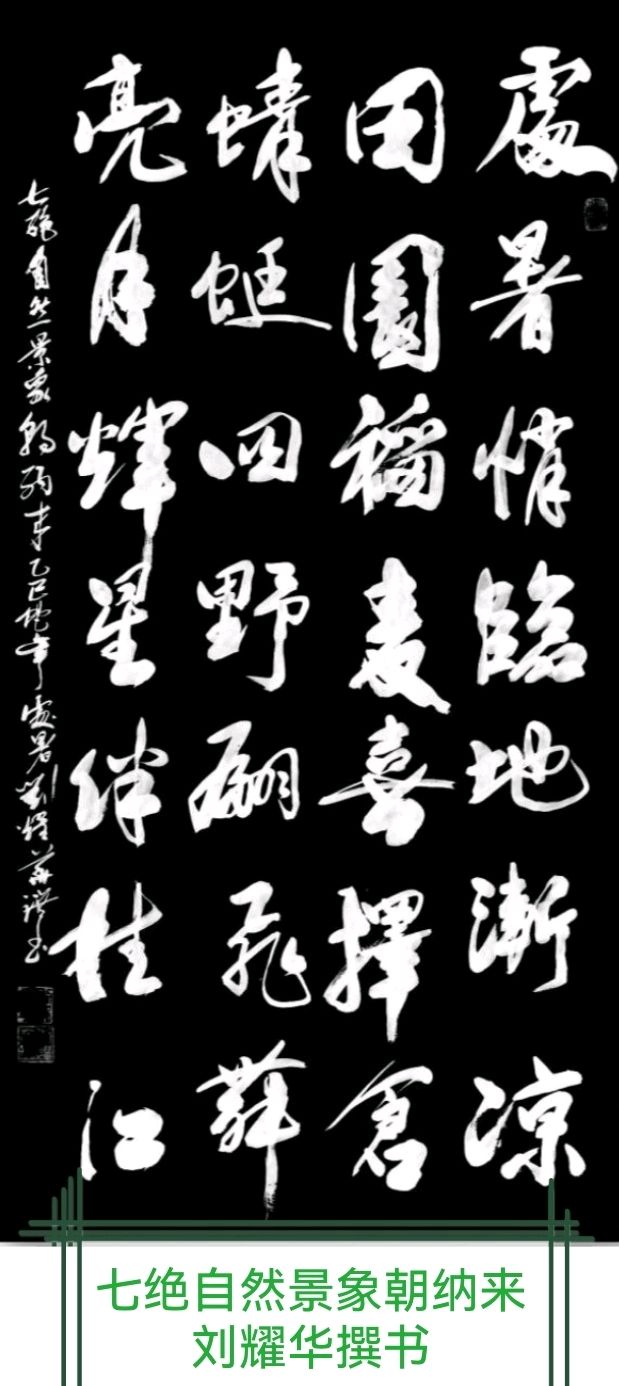 處暑悄臨地漸涼
田園稻麦喜擇倉
蜻蜓四野翩飛舞
亮月輝星伴桂江
七絕自然景象朝納来乙巳蛇年處暑劉耀華撰书
七绝自然景象朝纳来
刘耀华撰书